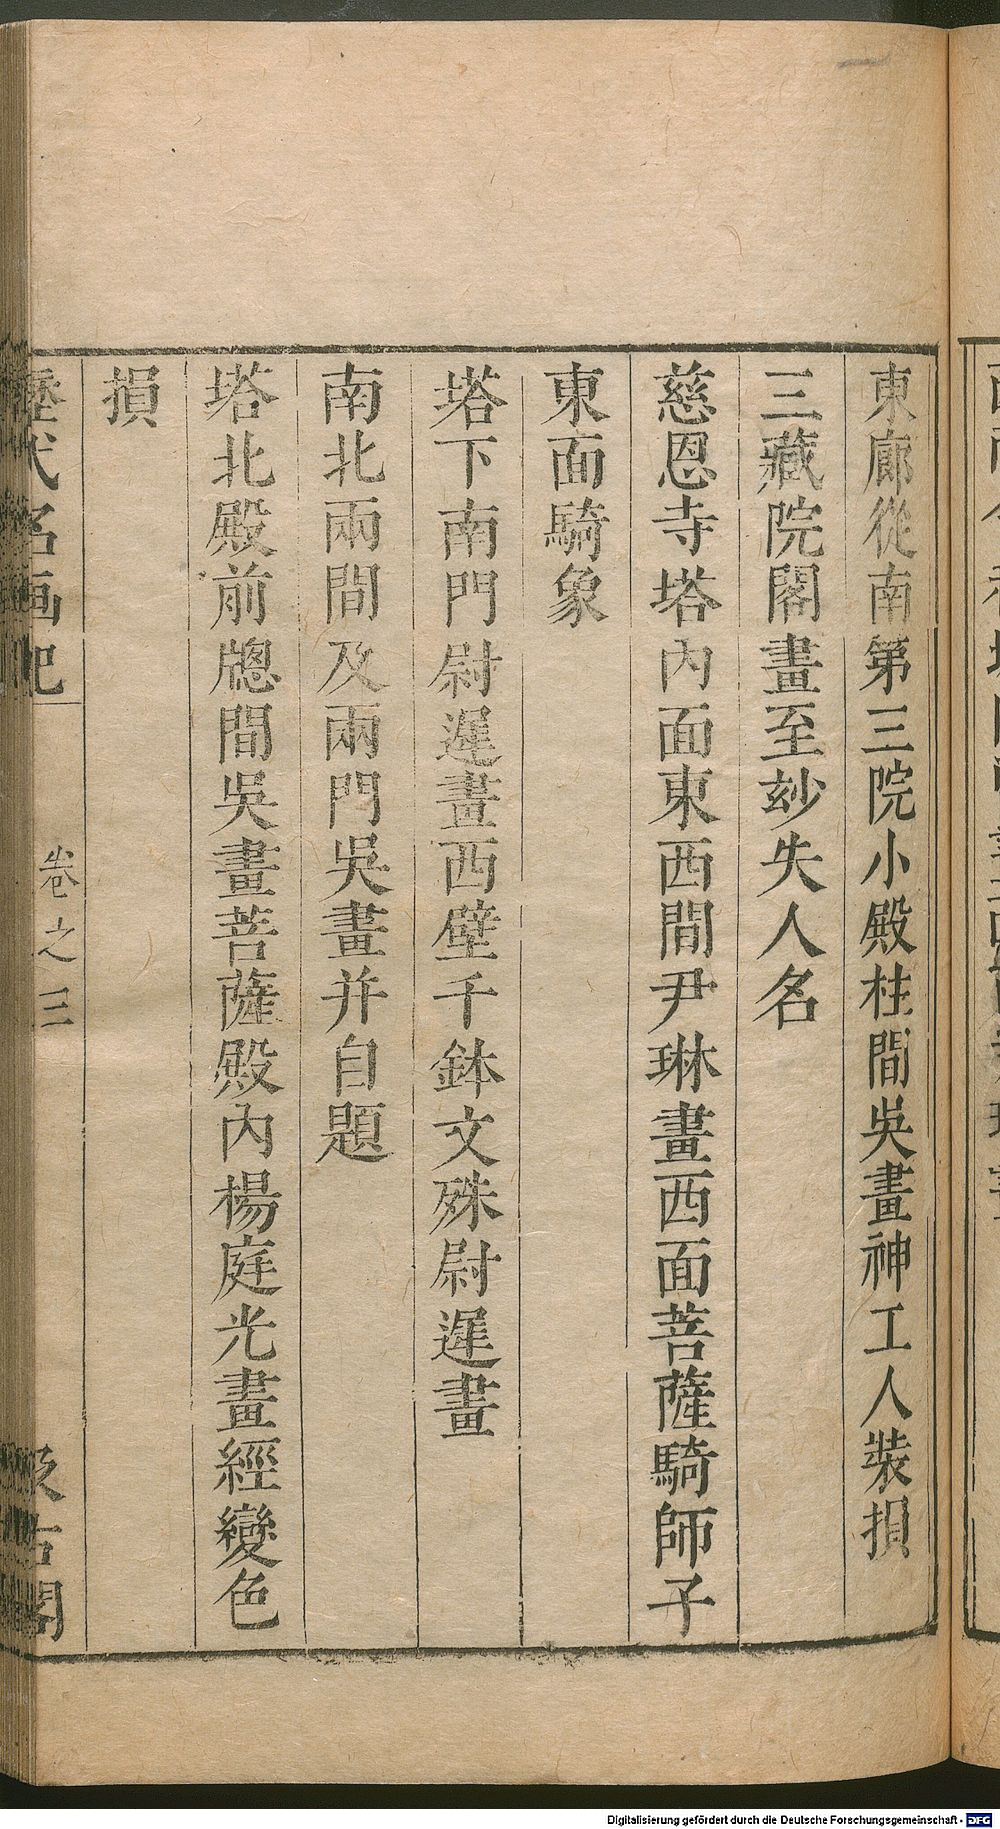 東廊從南第三院小殿柱間吳畫神工人裝損
三藏院閣畫至玅失人名
慈恩寺塔內面東西間尹琳畫西面菩薩騎師子
東面騎象
塔下南門尉遲畫西壁千鉢文殊尉遲畫
南北兩間及兩門吳畫并自題
塔北殿前牕間吳畫菩薩殿內楊庭光畫經變色
損
歷代名画記
卷之三
汲古閣
Digitalisierung gefördert durch die Deutsche Forschungsgemeinschaft - DFG